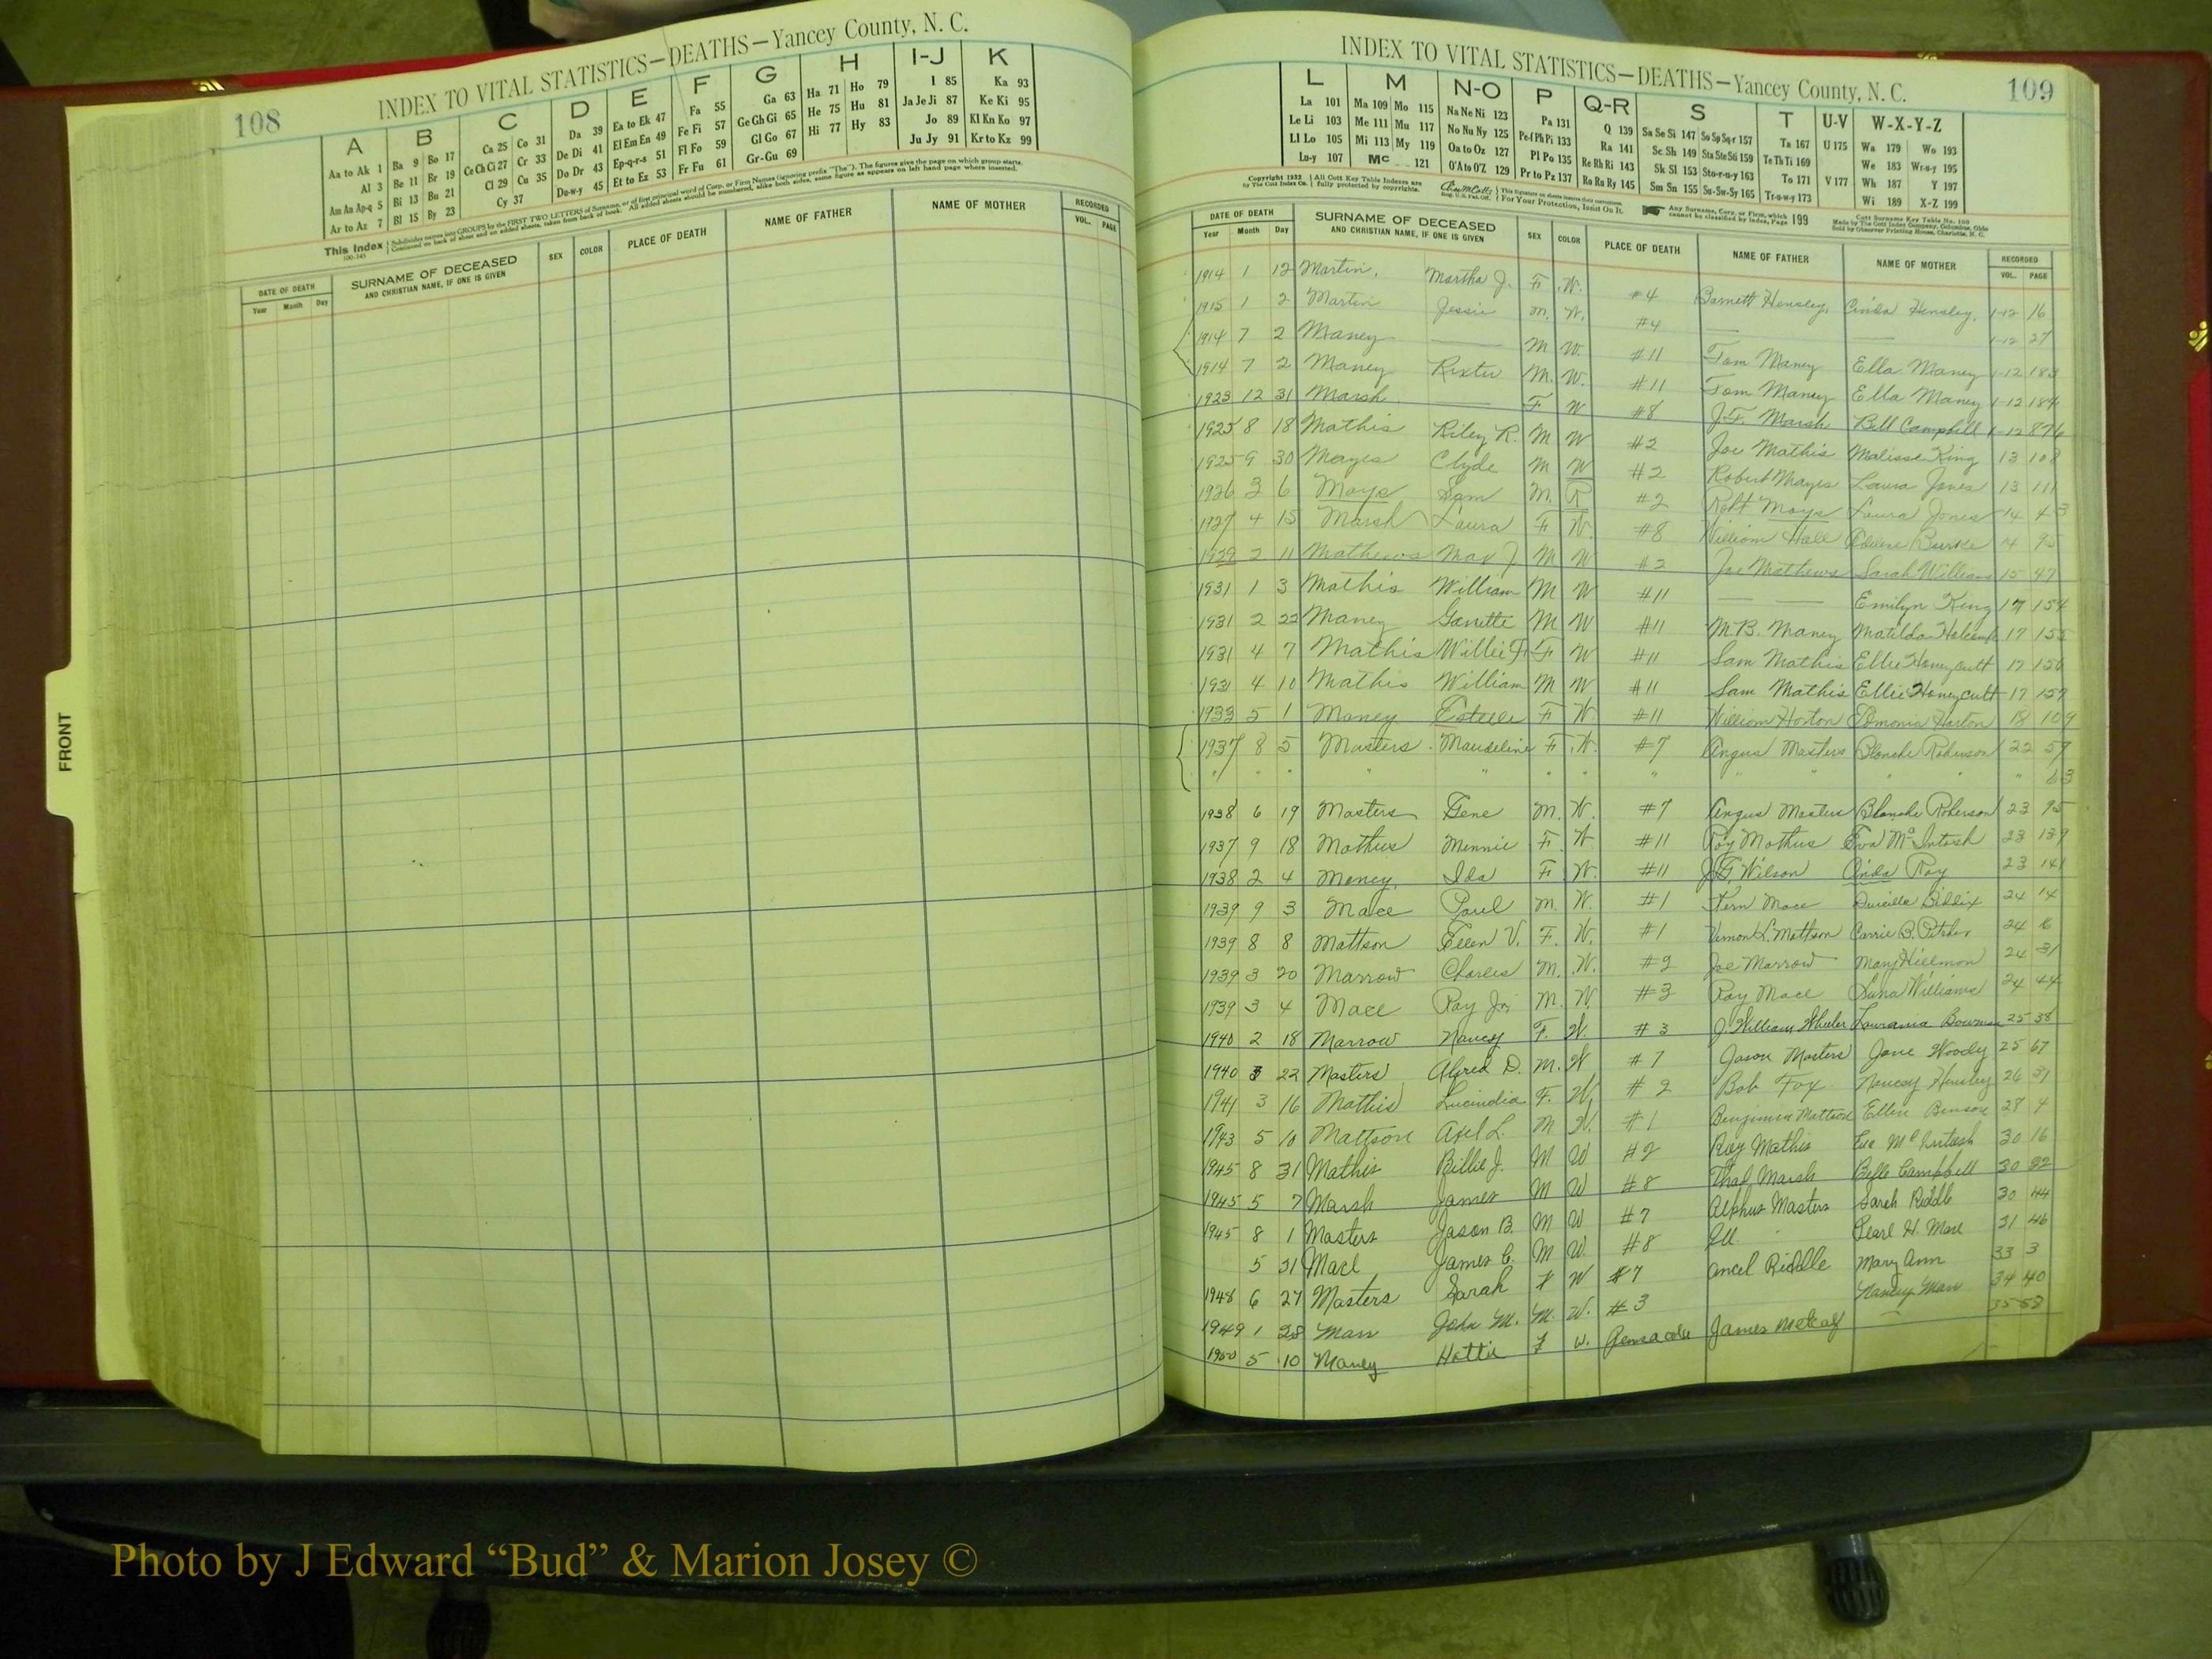 108
INDEX TO VITAL STATISTICS—DEATHS—Yancey County, N. C.
A B C D E F G H I-J K
Aa to Ak 1 Ba 9 Bo 17 Ca 25 Co 31 Da 39 Ea to Ek 47 Fa 55 Ga 63 Ha 71 Ho 79 I 85 Ka 93
Al 3 Be 11 Br 19 Ce Ch Ci 27 Cr 33 De Di 41 El Em En 49 Fe Fi 57 Ge Gh Gi 65 He 75 Hu 81 Ja Je Ji 87 Ke Ki 95
Am An Ap-q 5 Bi 13 Bu 21 Cl 29 Cu 35 Do Dr 43 Ep-q-r-s 51 Fl Fo 59 Gl Go 67 Hi 77 Hy 83 Jo 89 Kl Kn Ko 97
Ar to Az 7 Bl 15 By 23 Cy 37 Du-w-y 45 Et to Ez 53 Fr Fu 61 Gr-Gu 69 Ju Jy 91 Kr to Kz 99
This Index Subdivides names into GROUPS by the FIRST TWO LETTERS of Surname, or of first principal word of Corp. or Firm Names (ignoring prefix "The"). The figures give the page on which group starts.
Continued on back of sheet and on added sheets, taken from back of book. All added sheets should be numbered, alike both sides, same figure as appears on left hand page where inserted.
DATE OF DEATH SURNAME OF DECEASED SEX COLOR PLACE OF DEATH NAME OF FATHER NAME OF MOTHER RECORDED
Year Month Day AND CHRISTIAN NAME, IF ONE IS GIVEN VOL. PAGE
FRONT
INDEX TO VITAL STATISTICS—DEATHS—Yancey County, N. C.
109
L M N-O P Q-R S T U-V W-X-Y-Z
La 101 Ma 109 Mo 115 Na Ne Ni 123 Pa 131 Q 139 Sa Se Si 147 So Sp Sq-r 157 Ta 167 U 175 Wa 179 Wo 193
Le Li 103 Me 111 Mu 117 No Nu Ny 125 Pe-f Ph Pi 133 Ra 141 Sc Sh 149 Sta Ste Sti 159 Te Th Ti 169 We 183 Wr-u-y 195
Ll Lo 105 Mi 113 My 119 Oa to Oz 127 Pl Po 135 Re Rh Ri 143 Sk Sl 153 Sto-r-u-y 163 To 171 V 177 Wh 187 Y 197
Lu-y 107 Mc 121 O'A to O'Z 129 Pr to Pz 137 Ro Ru Ry 145 Sm Sn 155 Su-Sw-Sy 165 Tr-u-w-y 173 Wi 189 X-Z 199
Copyright 1932 by The Cott Index Co. All Cott Key Table Indexes are fully protected by copyrights. For Your Protection, Insist On It. Any Surname, Corp. or Firm, which cannot be classified by Index, Page 199
DATE OF DEATH SURNAME OF DECEASED SEX COLOR PLACE OF DEATH NAME OF FATHER NAME OF MOTHER RECORDED
Year Month Day AND CHRISTIAN NAME, IF ONE IS GIVEN VOL. PAGE
1914 1 12 Martin, Martha J. F. W. #4 Barnett Hensley, Cinda Hensley, 1-12 16
1915 1 2 Martin Jessie M. W. #4 — — 1-12 27
1914 7 2 Maney — M W. #11 Tom Maney Ella Maney 1-12 183
1914 7 2 Maney Rixter M. W. #11 Tom Maney Ella Maney 1-12 184
1923 12 31 Marsh — F W #8 J.F. Marsh Bell Campbell 1-12 876
1925 8 18 Mathis Riley R. M W #2 Joe Mathis Malissa King 13 108
1925 9 30 Mayes Clyde M W #2 Robert Mayes Laura Jones 13 111
1926 3 6 Mays Sam M. R #2 Robt Mays Laura Jones 14 43
1927 4 15 Marsh Laura F W. #8 William Hall Burke 14 95
1929 2 11 Mathews Max J M W #2 Joe Mathews Sarah Williams 15 47
1931 1 3 Mathis William M W #11 — — Emilyn King 17 154
1931 2 22 Maney Garette M W #11 M.B. Maney Matilda Holcomb 17 155
1931 4 7 Mathis Willie F. F W #11 Sam Mathis Ellie Honeycutt 17 156
1931 4 10 Mathis William M W #11 Sam Mathis Ellie Honeycutt 17 157
1933 5 1 Maney Estelle F W #11 William Horton Edmonia Horton 18 109
1937 8 5 Masters Maudeline F. W. #7 Angus Masters Blanche Roberson 22 57
" " " " " " " " " " " " 63
1938 6 19 Masters Gene M. W. #7 Angus Masters Blanche Roberson 23 95
1937 9 18 Mathus Minnie F. W #11 Roy Mathus Eva McIntosh 23 139
1938 2 4 Maney, Ida F. W. #11 J.F. Wilson Cinda Ray 23 141
1939 9 3 Mace Paul M. W. #1 Fern Mace Biddix 24 14
1939 8 8 Mattson Ellen V. F. W. #1 Vernon L. Mattson Carrie B. 24 16
1939 3 20 Marrow Charles M. W. #2 Joe Marrow Mary Hillmon 24 31
1939 3 4 Mace Ray Jr. M. W. #3 Ray Mace Williams 24 44
1940 2 18 Marrow Nancy F. W. #3 J. William Wheeler Laurania Bowman 25 38
1940 3 22 Masters Alfred D. M. W #7 Jason Masters Jane Woody 25 67
1941 3 16 Mathis Lucindia F. W. #2 Bob Fox Nancy Hensley 26 31
1943 5 10 Mattson Axel L. M W. #1 Benjimen Mattson Ellen Benson 28 4
1945 8 31 Mathis Billie J. M W #2 Ray Mathis Eva McIntosh 30 16
1945 5 7 Marsh James M W #8 Thad Marsh Belle Campbell 30 32
1945 8 1 Masters Jason B. M W #7 Alphus Masters Sarah Riddle 30 44
5 31 Mace James C. M W. #8 Ell. Pearl H. Mace 31 46
1948 6 27 Masters Sarah F W #7 Ancel Riddle Mary Ann 33 3
1949 1 28 Marr John M. M. W. #3 Nancy Marr 34 40
1950 5 10 Maney Hattie F W. Pensacola James Metcalf — 35 58
Photo by J Edward “Bud” & Marion Josey ©